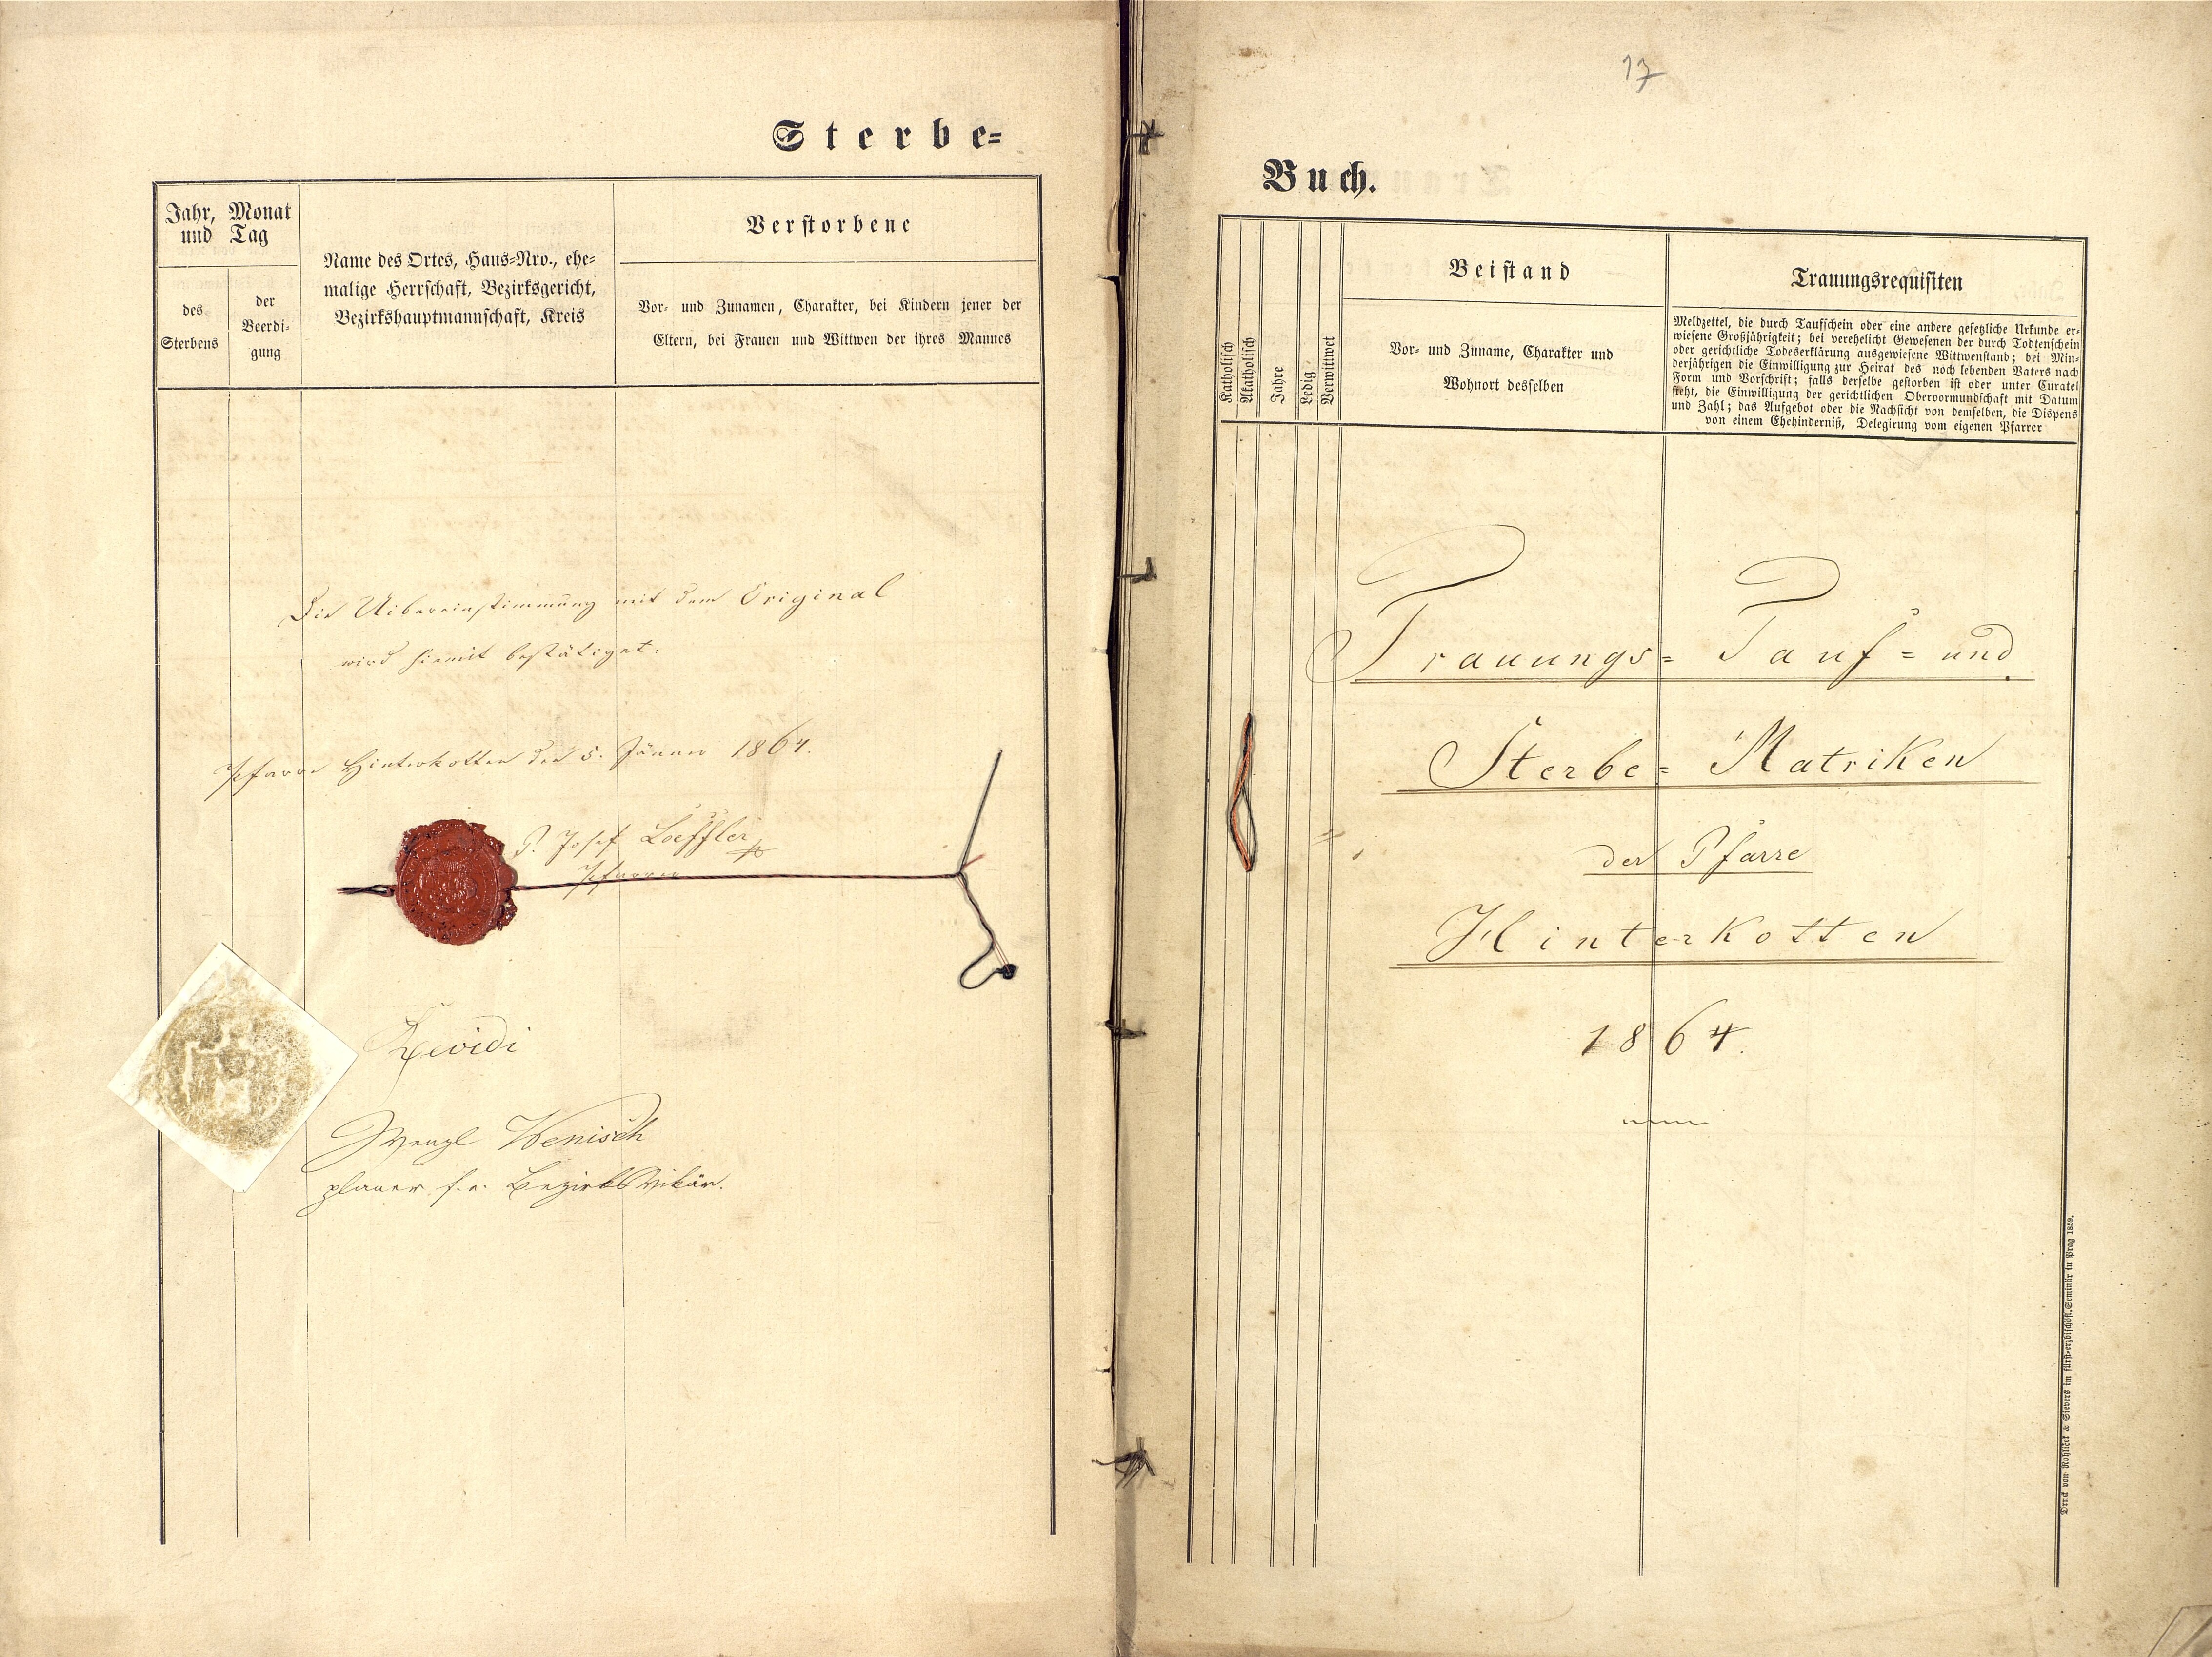 Sterbe=
Jahr, Monat
und Tag
des
Sterbens
der
Beerdi-
gung
Name des Ortes, Haus=Nro., ehe=
malige Herrschaft, Bezirksgericht,
Bezirkshauptmannschaft, Kreis
Verstorbene
Vor- und Zunamen, Charakter, bei Kindern jener der
Eltern, bei Frauen und Wittwen der ihres Mannes
Die Uibereinstimmung mit dem Original
wird hiemit bestätiget.
Pfarre Hinterkotten den 5. Jänner 1864.
P. Josef Loeffler
Pfarrer
Revidi
Wenzl Henisch
planer f. e. Bezirks Vikär.
17
Buch.
Katholisch
Akatholisch
Jahre
Ledig
Verwittwet
Beistand
Vor- und Zuname, Charakter und
Wohnort desselben
Trauungsrequisiten
Meldzettel, die durch Taufschein oder eine andere gesetzliche Urkunde er-
wiesene Großjährigkeit; bei verehelicht Gewesenen der durch Todtenschein
oder gerichtliche Todeserklärung ausgewiesene Wittwenstand; bei Min-
derjährigen die Einwilligung zur Heirat des noch lebenden Vaters nach
Form und Vorschrift; falls derselbe gestorben ist oder unter Curatel
steht, die Einwilligung der gerichtlichen Obervormundschaft mit Datum
und Zahl; das Aufgebot oder die Nachsicht von demselben, die Dispens
von einem Ehehinderniß, Delegirung vom eigenen Pfarrer
Trauungs= Tauf= und
Sterbe= Matriken
der Pfarre
Hinterkotten
1864.
Druck von Rohliček & Sievers im fürst-erzbischöfl. Seminär in Prag 1859.